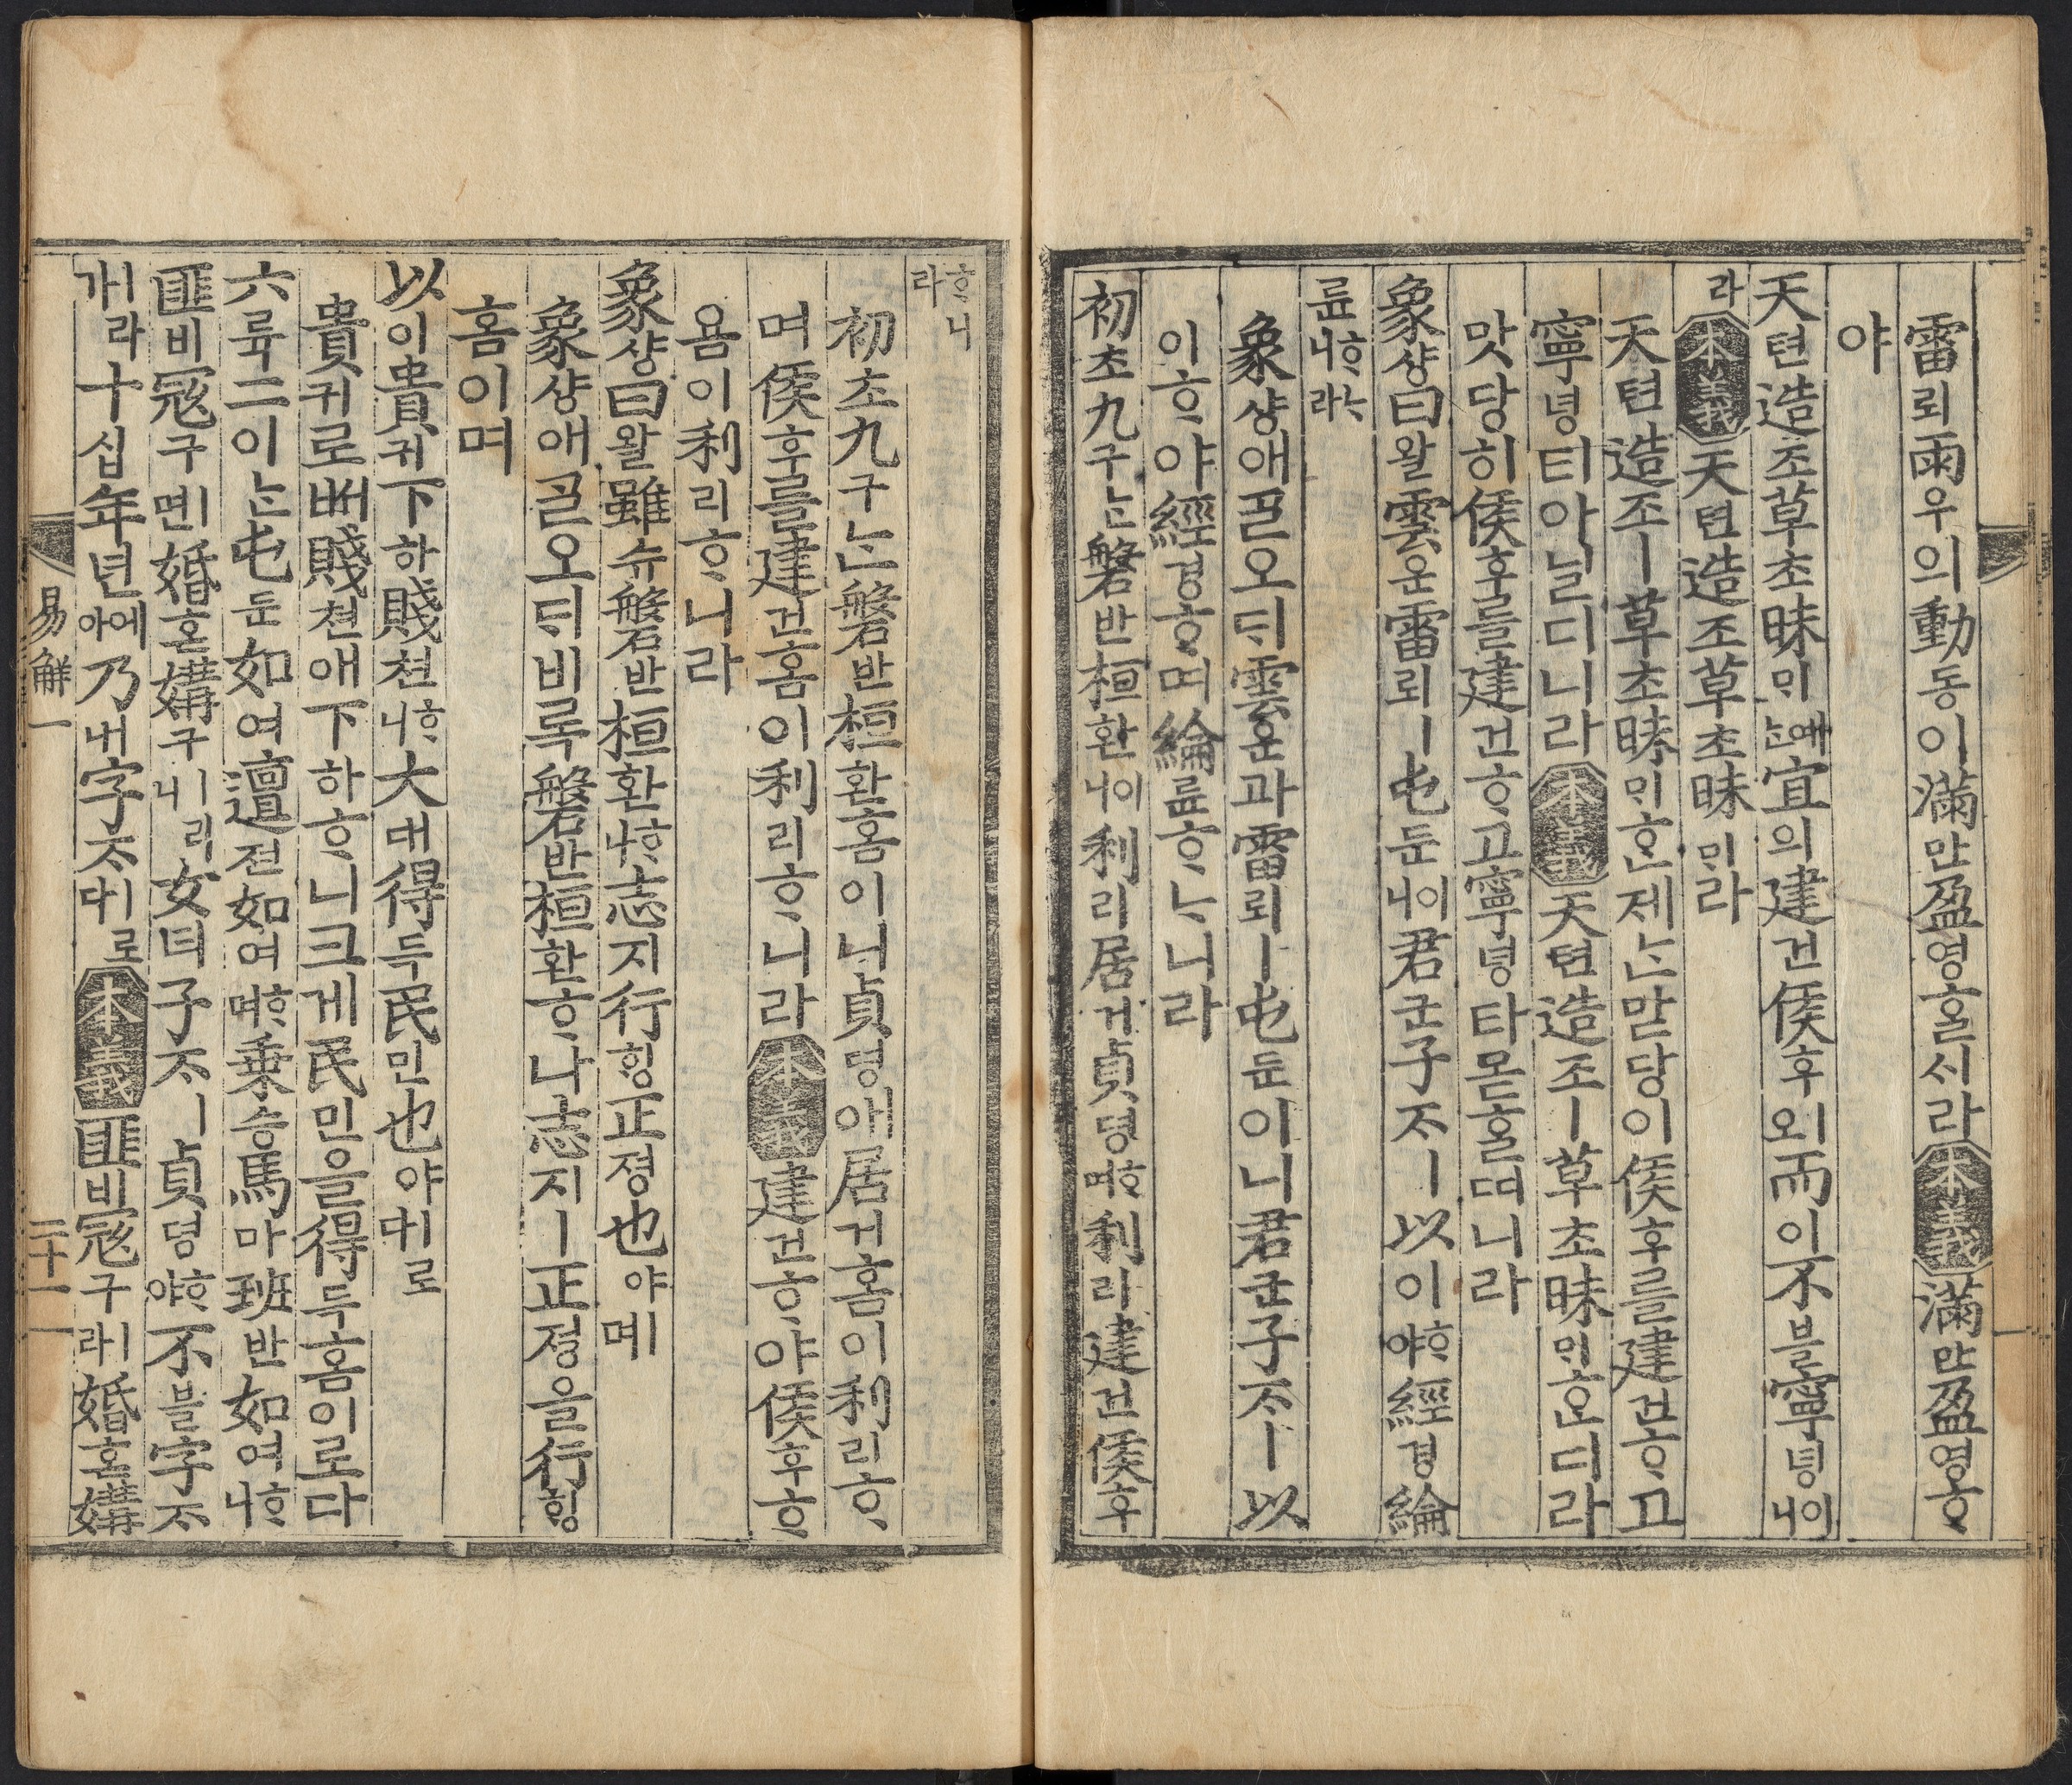 雷뢰雨우의動동이滿만盈영홀시라本義滿만盈영ᄒᆞ
야
天텬造조草초昧ᄆᆡ예ᄂᆞᆫ宜의建건侯후ㅣ오而이不블寧녕이니
라本義天텬造조草초昧ᄆᆡ라
天텬造조ㅣ草초昧ᄆᆡᄒᆞᆫ제ᄂᆞᆫ맛당이侯후를建건ᄒᆞ고
寧녕티아닐디니라本義天텬造조ㅣ草초昧ᄆᆡᄒᆞᆫ디라
맛당히侯후를建건ᄒᆞ고寧녕타몯홀ᄯᅵ니라
象샹曰왈雲운雷뢰ㅣ屯둔이니君군子ᄌᆞㅣ以이ᄒᆞ야經경綸
륜ᄒᆞᄂᆞ니라
象샹애ᄀᆞᆯ오ᄃᆡ雲운과雷뢰ㅣ屯둔이니君군子ᄌᆞㅣ以
이ᄒᆞ야經경ᄒᆞ며綸륜ᄒᆞᄂᆞ니라
初초九구ᄂᆞᆫ磐반桓환이니利리居거貞뎡ᄒᆞ며利리建건侯후
ᄒᆞ니라
初초九구ᄂᆞᆫ磐반桓환홈이니貞뎡애居거홈이利리ᄒᆞ
며侯후를建건홈이利리ᄒᆞ니라本義建건ᄒᆞ야侯후ᄒᆞ
욤이利리ᄒᆞ니라
象샹曰왈雖슈磐반桓환ᄒᆞ나志지行ᄒᆡᆼ正졍也야ㅣ며
象샹애ᄀᆞᆯ오ᄃᆡ비록磐반桓환ᄒᆞ나志지ㅣ正졍을行ᄒᆡᆼ
홈이며
以이貴귀下하賤쳔ᄒᆞ니大대得득民민也야ㅣ로다
貴귀로ᄡᅥ賤쳔애下하ᄒᆞ니크게民민을得득홈이로다
六륙二이ᄂᆞᆫ屯둔如여邅젼如여ᄒᆞ며乘승馬마班반如여ᄒᆞ니
匪비寇구ㅣ면婚혼媾구ㅣ니리女녀子ᄌᆞㅣ貞뎡ᄒᆞ야不블字ᄌᆞ
ㅣ라가十십年년에아乃내字ᄌᆞㅣ로다本義匪비寇구ㅣ라婚혼媾
易解一 二十一